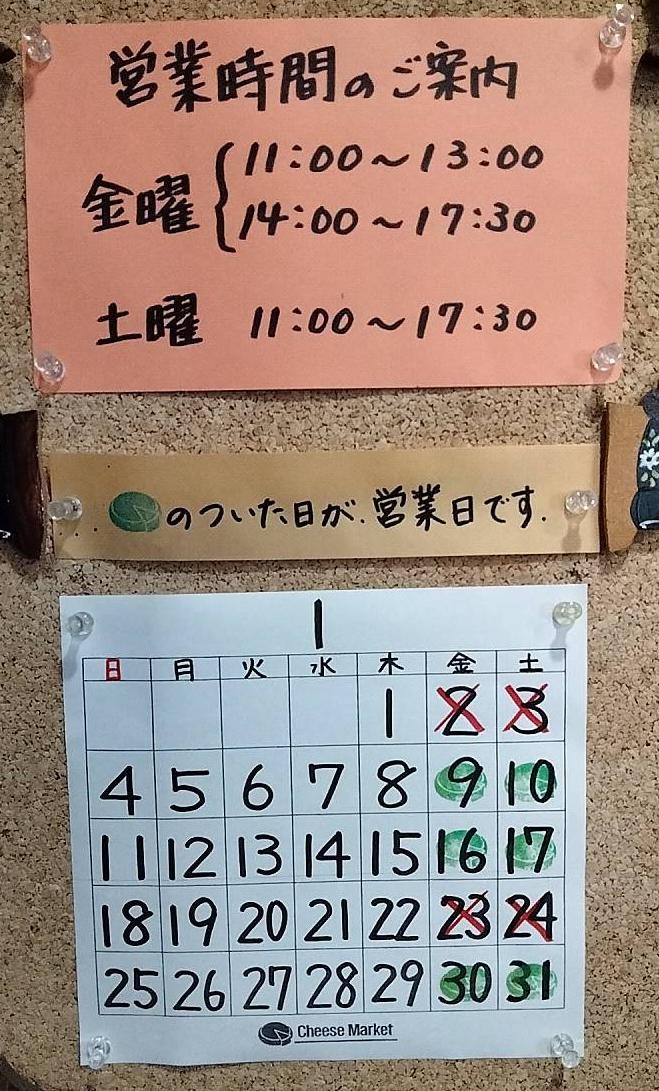 営業時間のご案内
金曜 { 11:00～13:00
14:00～17:30
土曜 11:00～17:30
のついた日が、営業日です.
1
日 月 火 水 木 金 土
1 2 3
4 5 6 7 8 9 10
11 12 13 14 15 16 17
18 19 20 21 22 23 24
25 26 27 28 29 30 31
Cheese Market